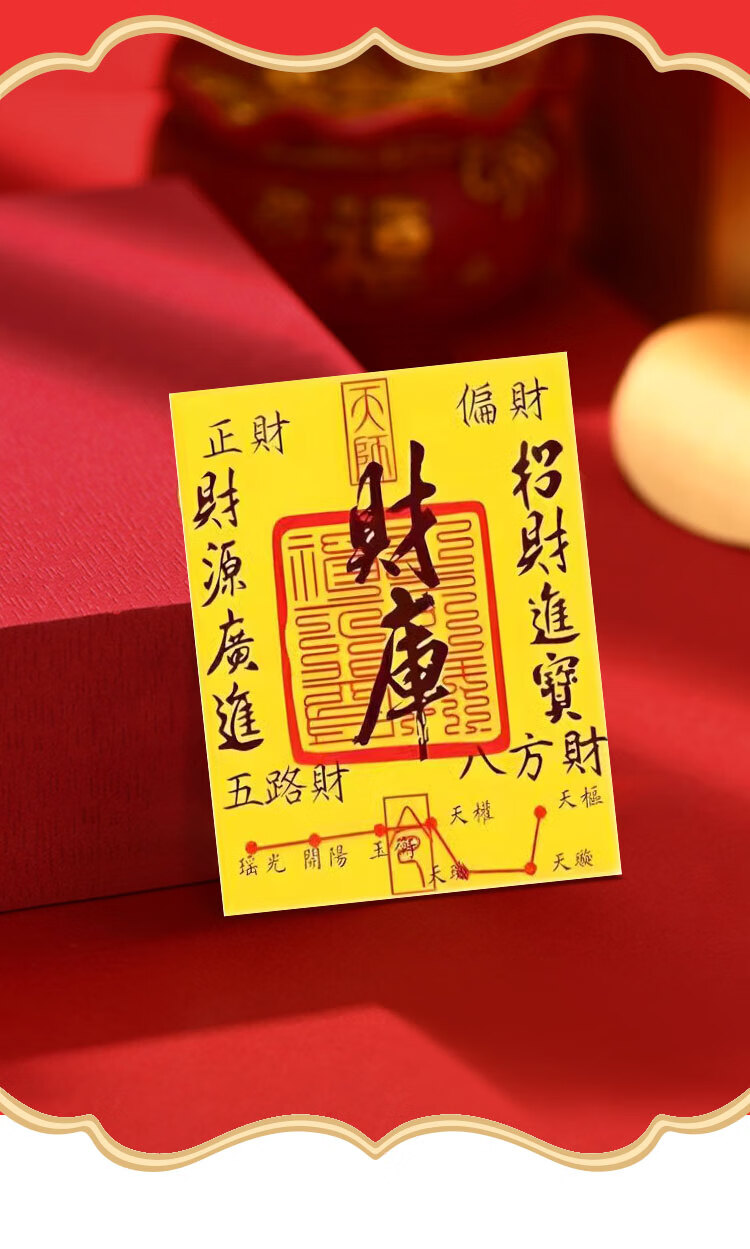 天師
偏財
正財
財庫
招財進寶
財源廣進
八方財
五路財
天樞
天權
天璇
玉衡
開陽
瑤光
福